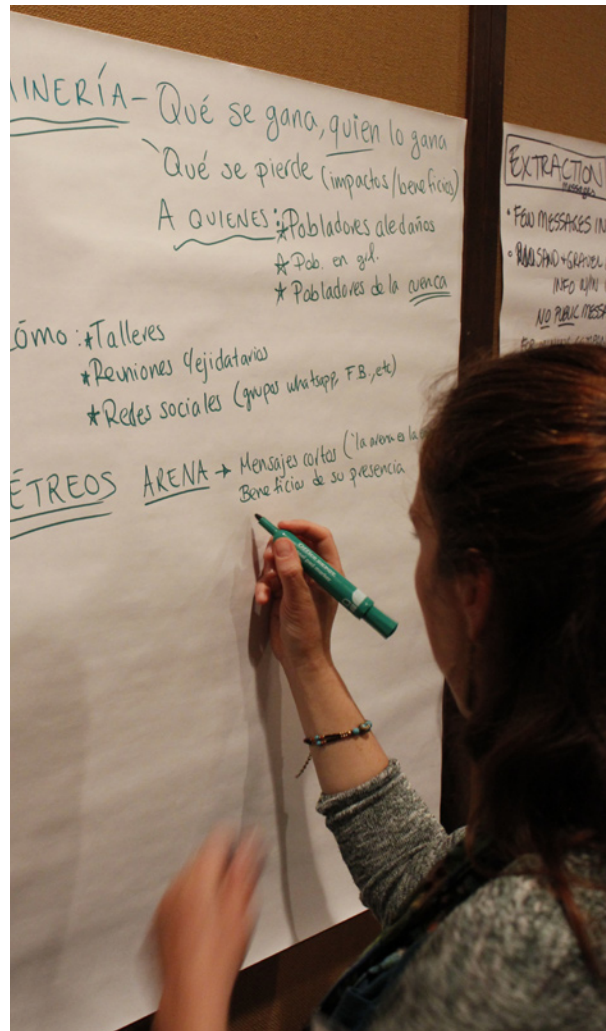 MINERÍA - Qué se gana, quien lo gana
Qué se pierde (impactos/beneficios)
A QUIENES: * Pobladores aledaños
* Pob. en gil.
* Pobladores de la cuenca
Cómo: * Talleres
* Reuniones c/ejidatarios
* Redes sociales (grupos whatsapp, F.B., etc)
PÉTREOS ARENA → Mensajes cortos ("la arena es la
Beneficios de su presencia
EXTRACTION
messages
• FEW MESSAGES IN
SAND + GRAVEL
INFO W/IN
NO PUBLIC MESSA